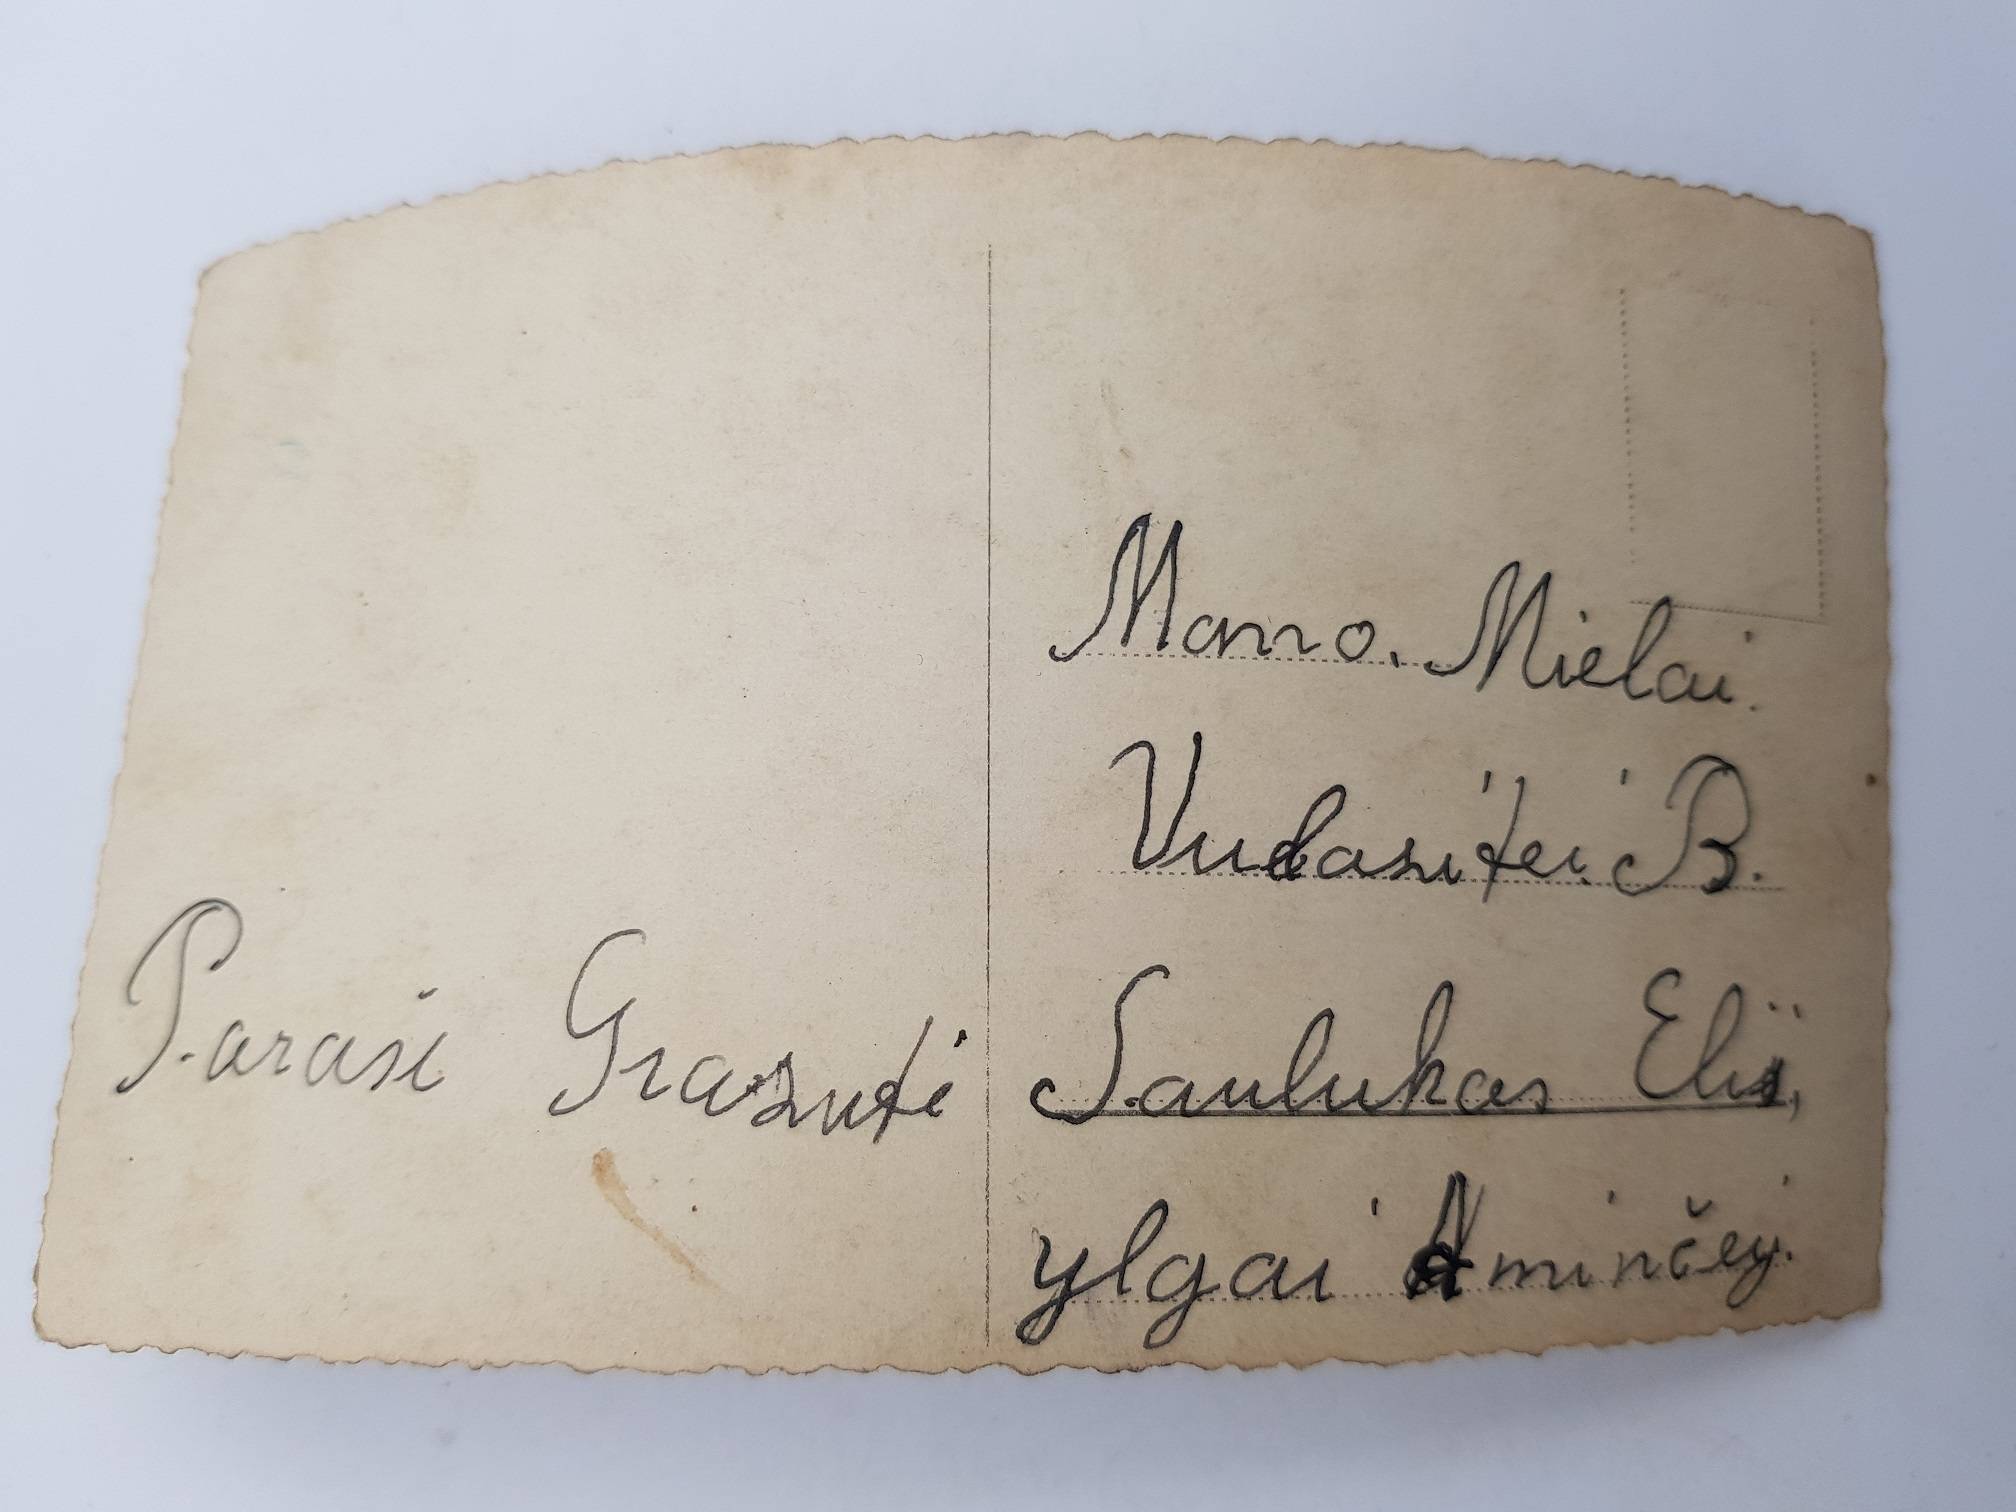 Parasi Grazuti
Mamo. Mielai.
Vudasitei B.
Saulukas
ylgai Aminčej.